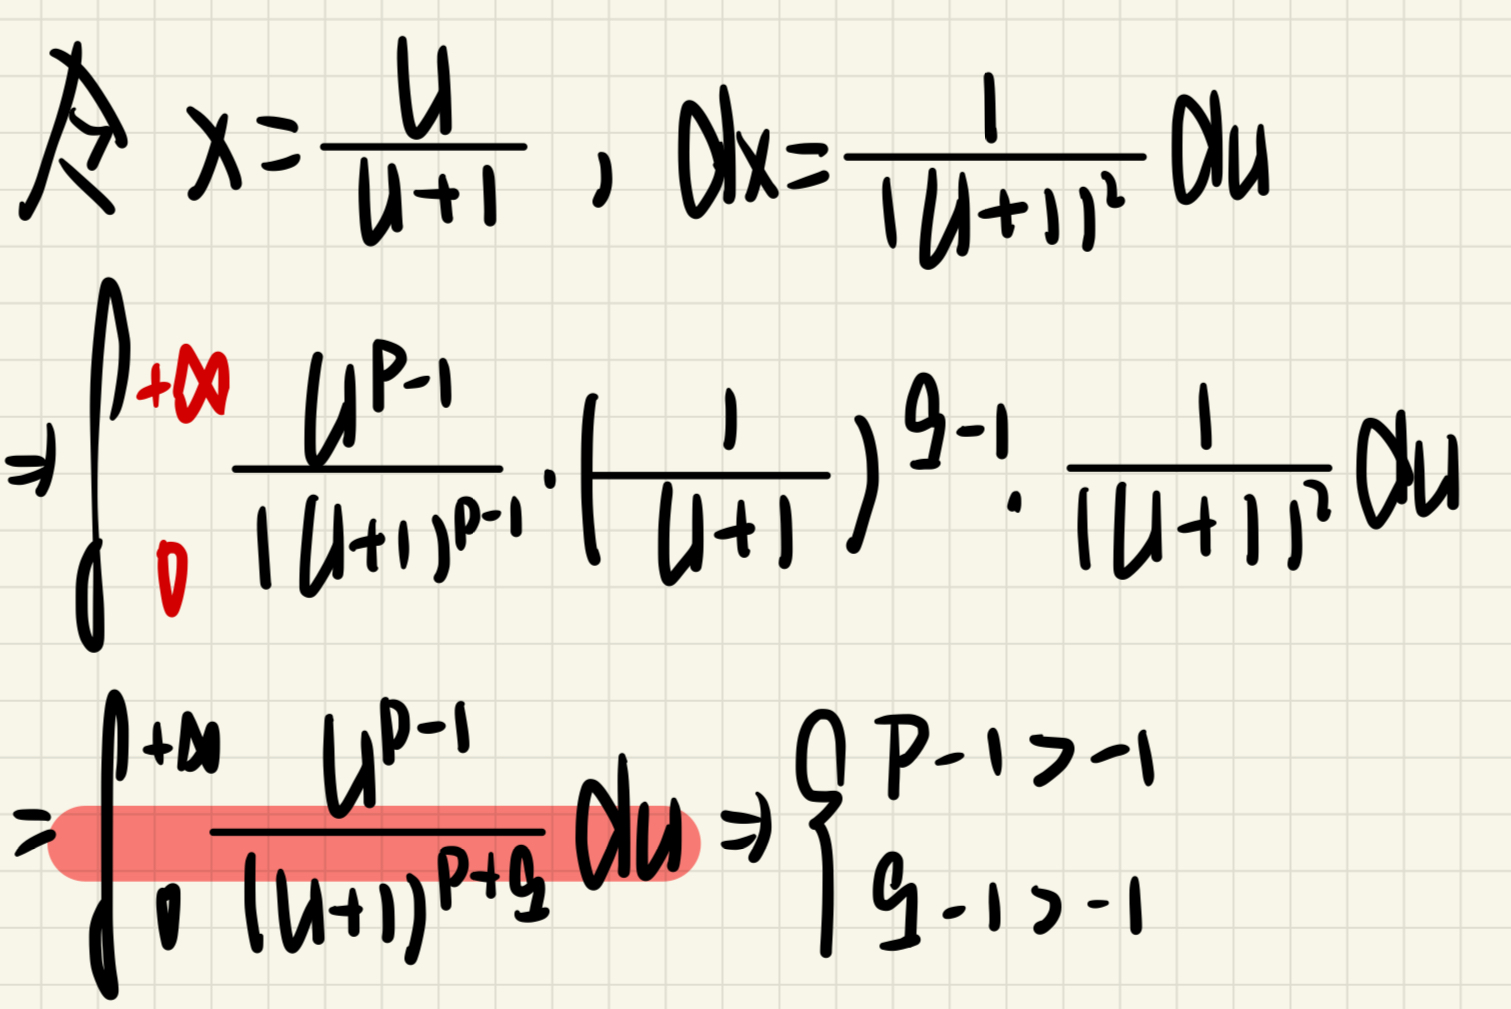 令 x = \frac{u}{u+1} , dx = \frac{1}{(u+1)^2} du
⇒ \int_0^{+∞} \frac{u^{p-1}}{(u+1)^{p-1}} · (\frac{1}{u+1})^{q-1} · \frac{1}{(u+1)^2} du
= \int_0^{+∞} \frac{u^{p-1}}{(u+1)^{p+q}} du ⇒ { p-1 > -1
q-1 > -1